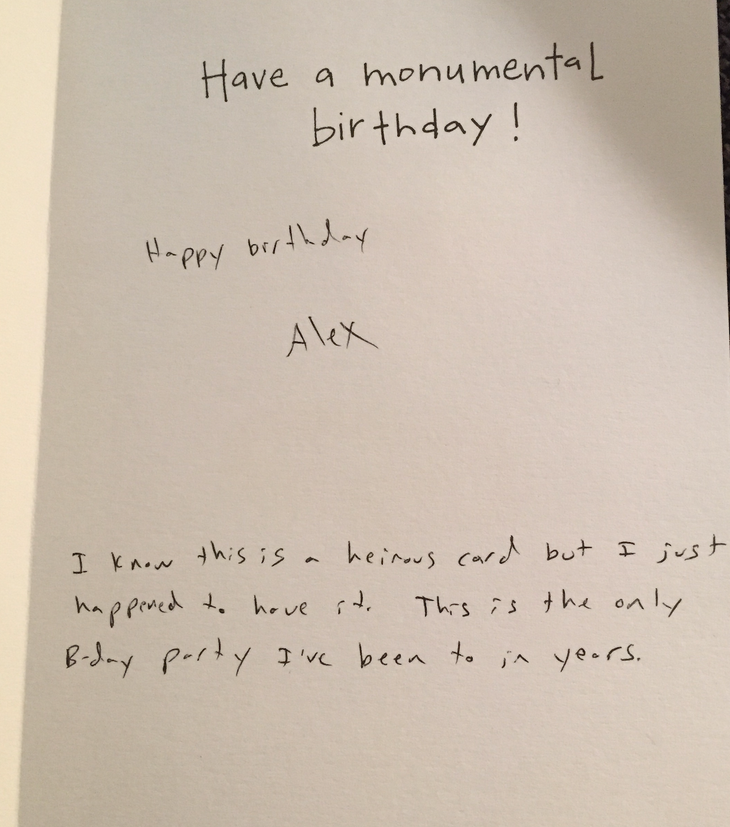 Have a monumental
birthday!
Happy birthday
Alex
I know this is a heinous card but I just
happened to have it. This is the only
B-day party I've been to in years.